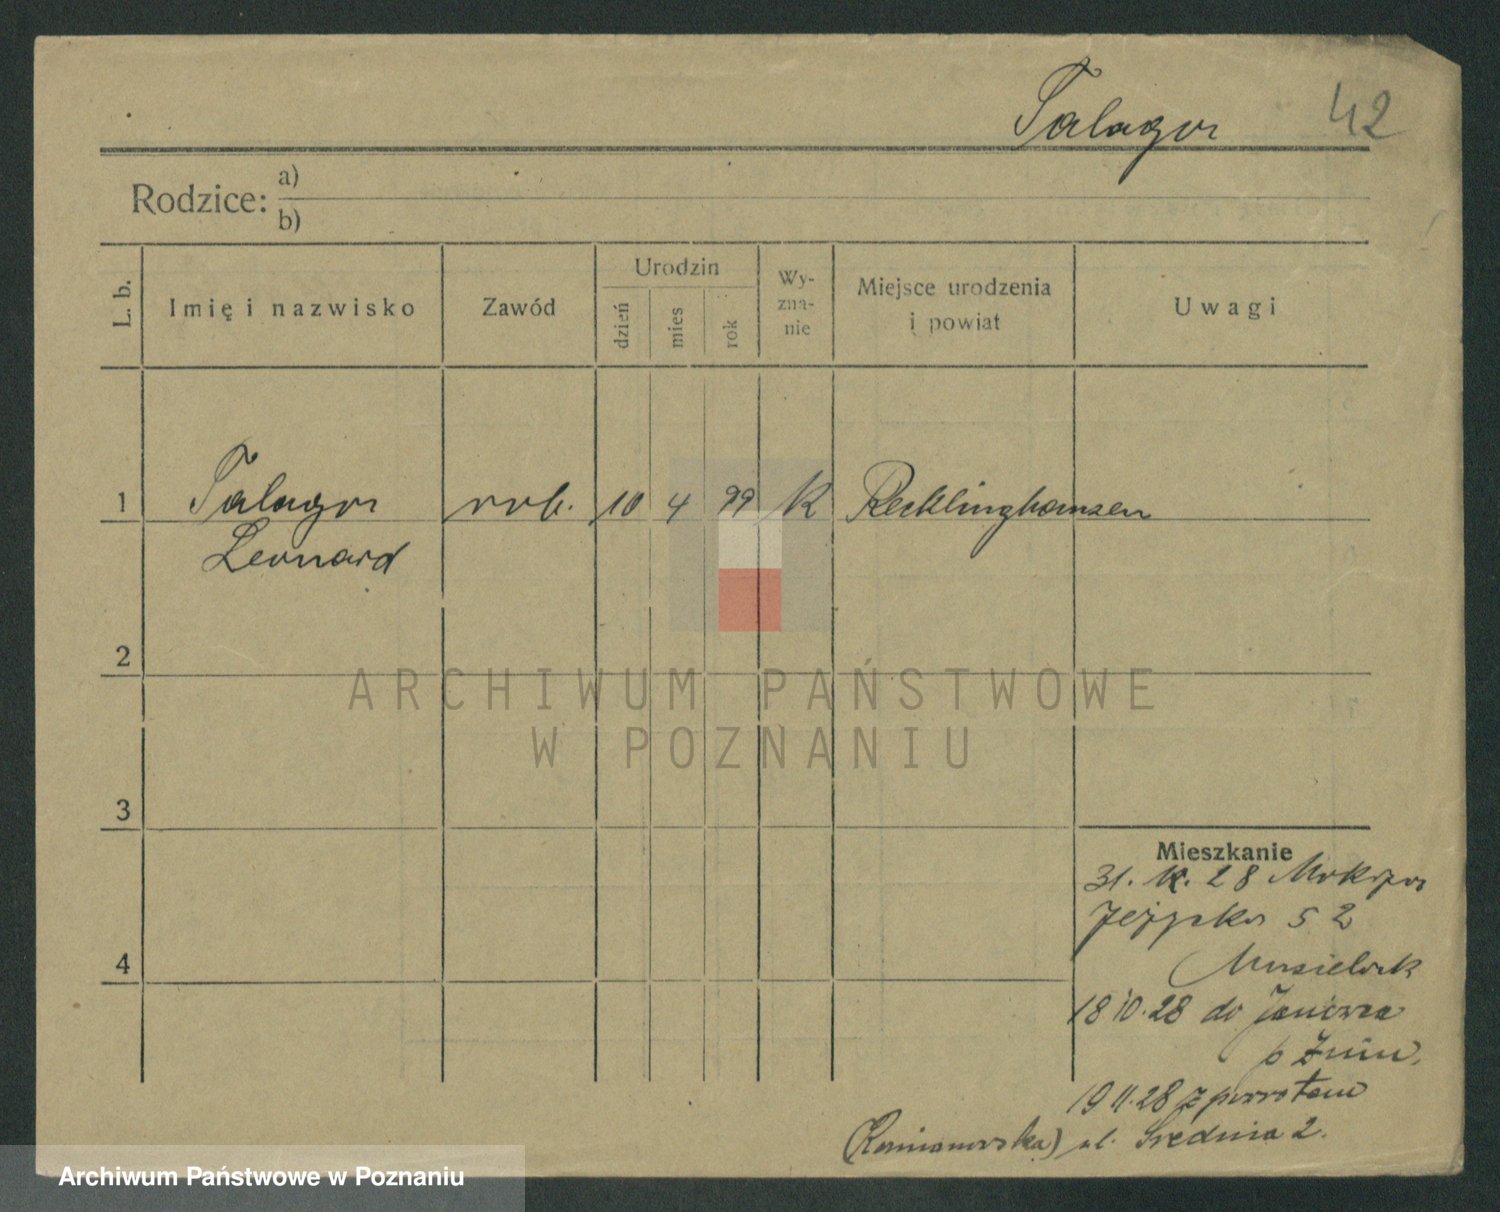 Talagor 42
Rodzice: a)
b)
L. b. Imię i nazwisko Zawód Urodzin dzień mies rok Wy-zna-nie Miejsce urodzenia i powiat Uwagi
1 Talagor rob. 10 4 99 K Recklinghausen
Leonard
2
ARCHIWUM PAŃSTWOWE
W POZNANIU
3
Mieszkanie
31. 28
52
4
18 10.28 do
p Żnin.
19 11.28 z powrotem
ul. Średnia 2.
Archiwum Państwowe w Poznaniu